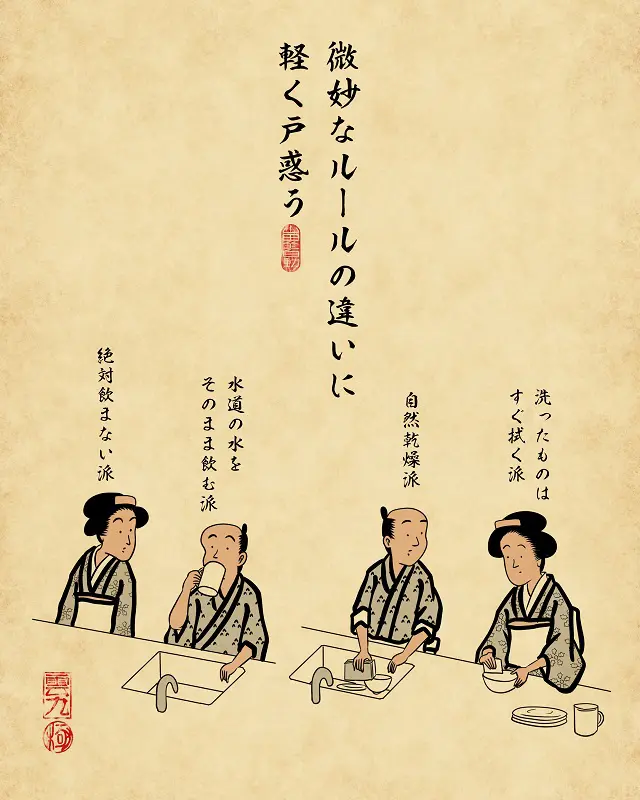 微妙なルールの違いに
軽く戸惑う
洗ったものは
すぐ拭く派
自然乾燥派
水道の水を
そのまま飲む派
絶対飲まない派